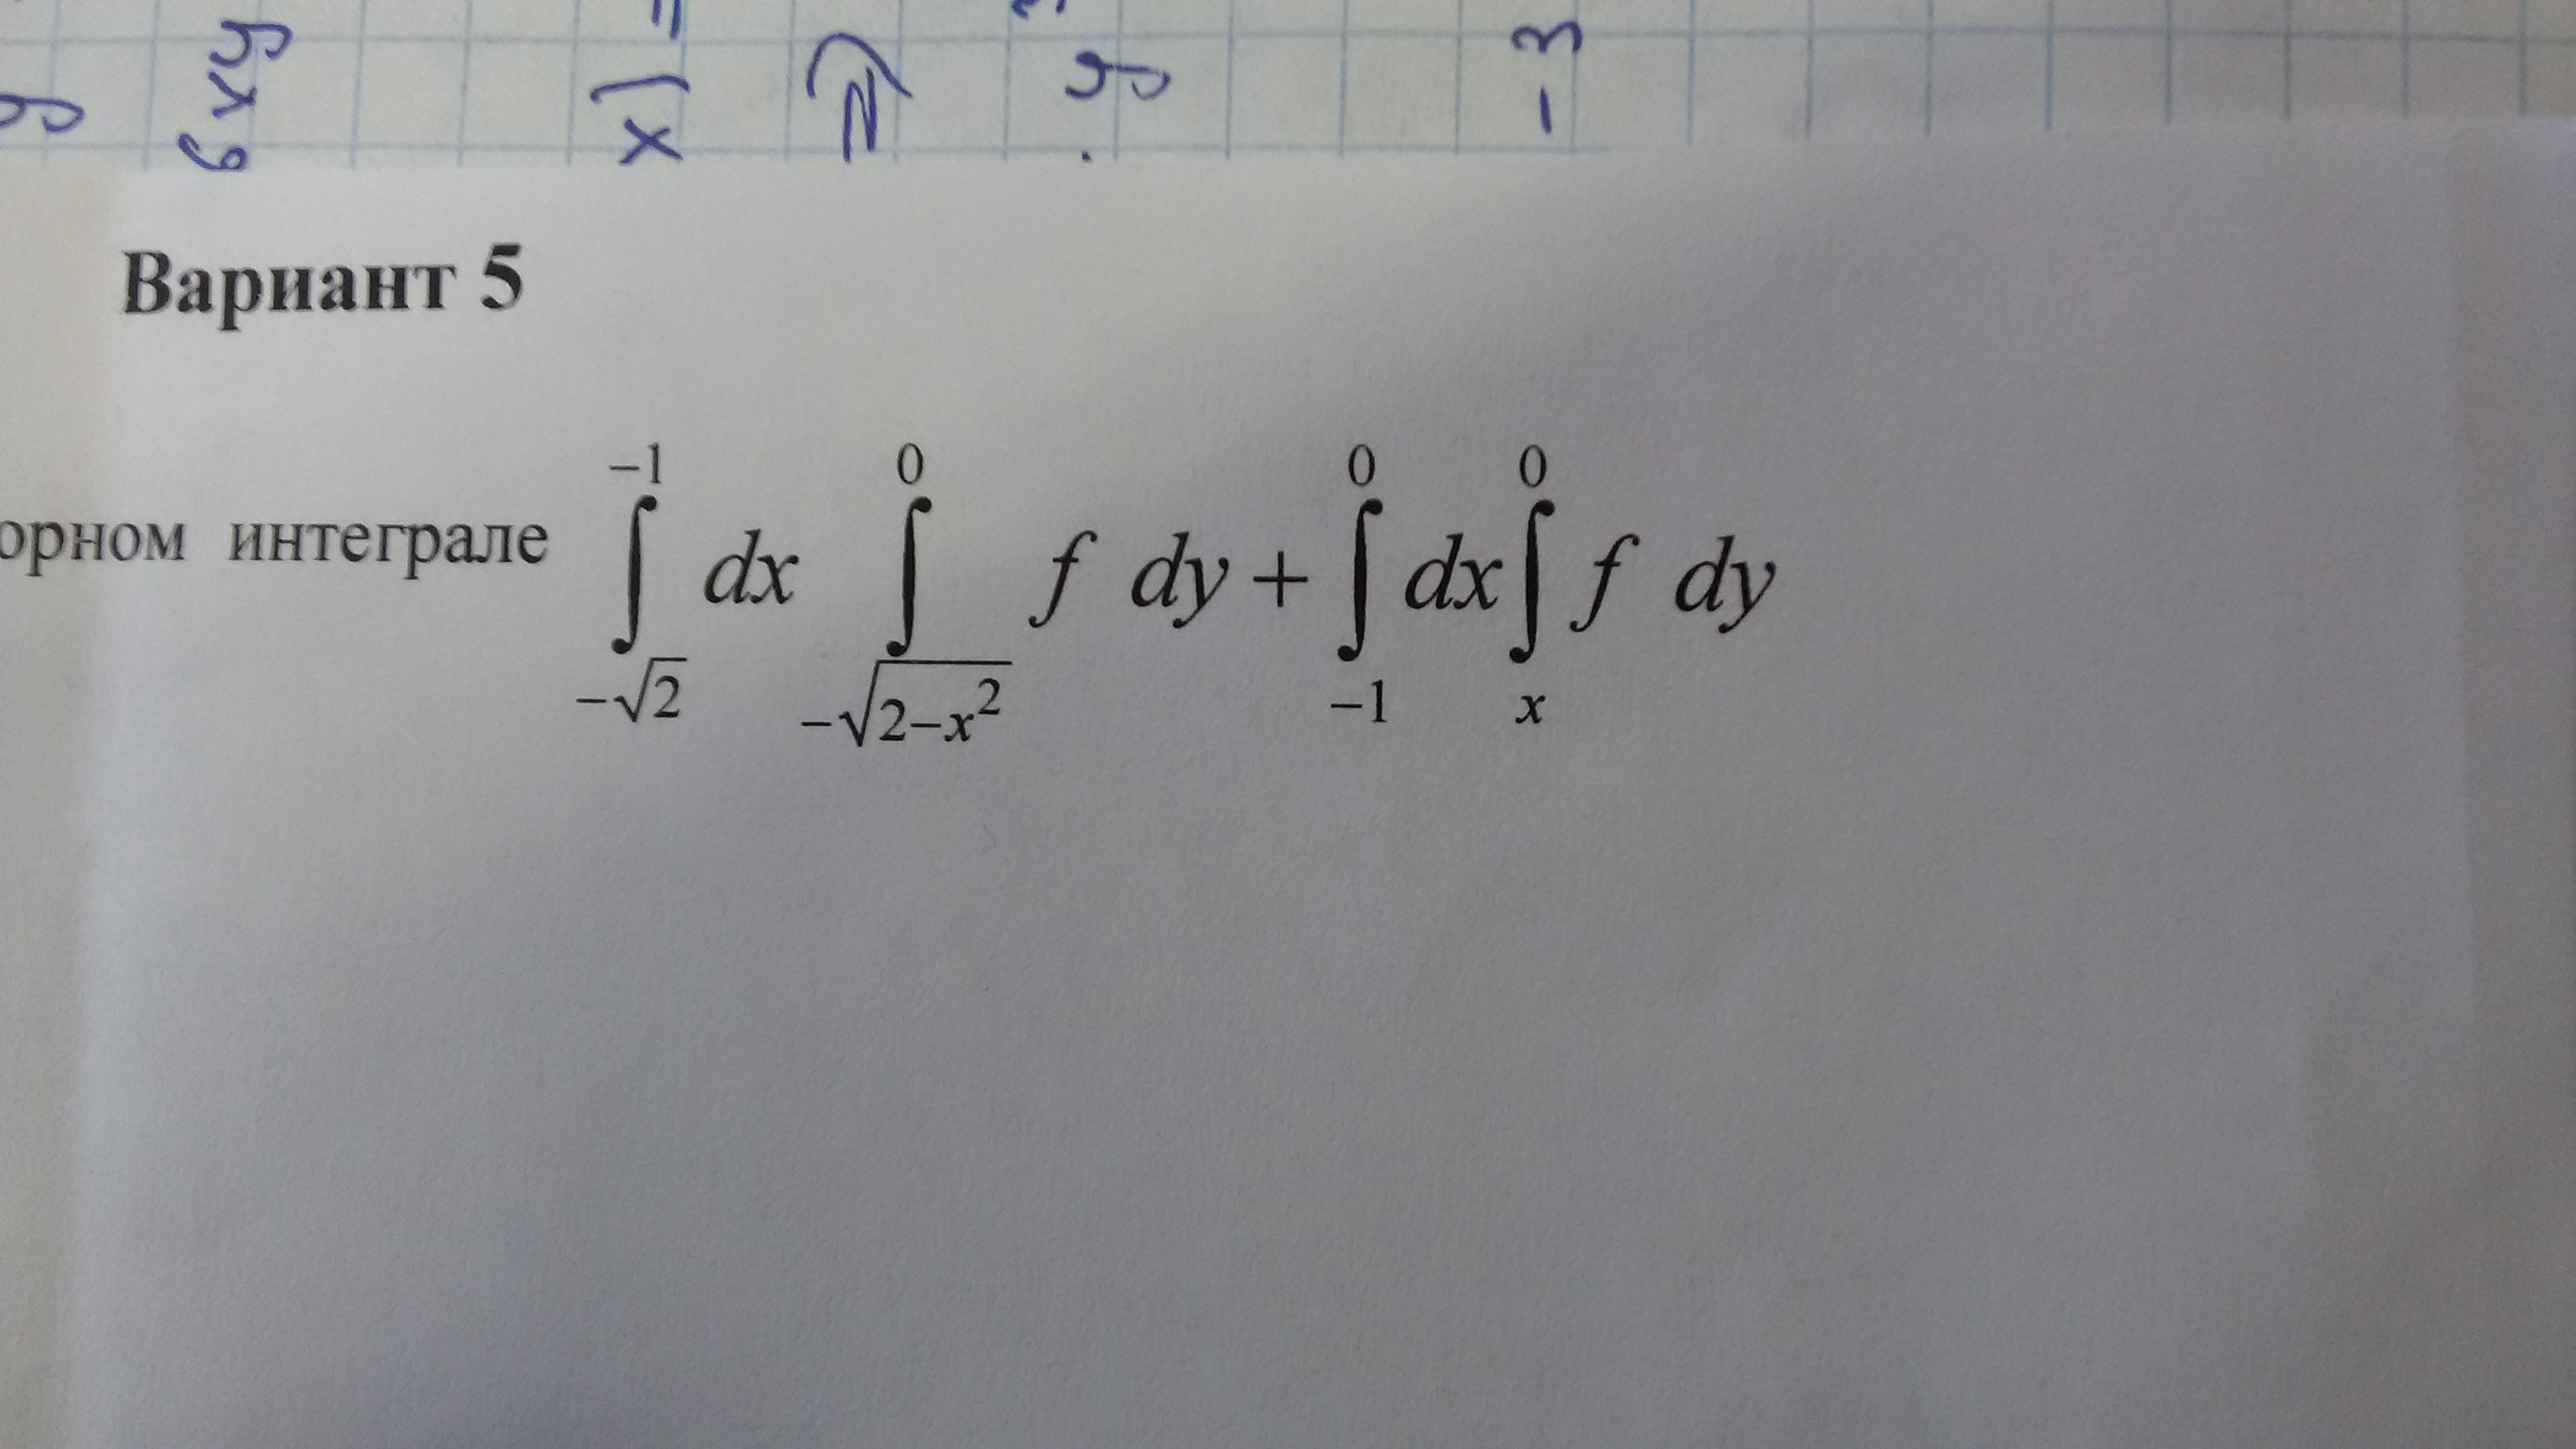 6xy
x) =
y
-3
Вариант 5
орном интеграле ∫_{-√2}^{-1} dx ∫_{-√(2-x²)}^{0} f dy + ∫_{-1}^{0} dx ∫_{x}^{0} f dy